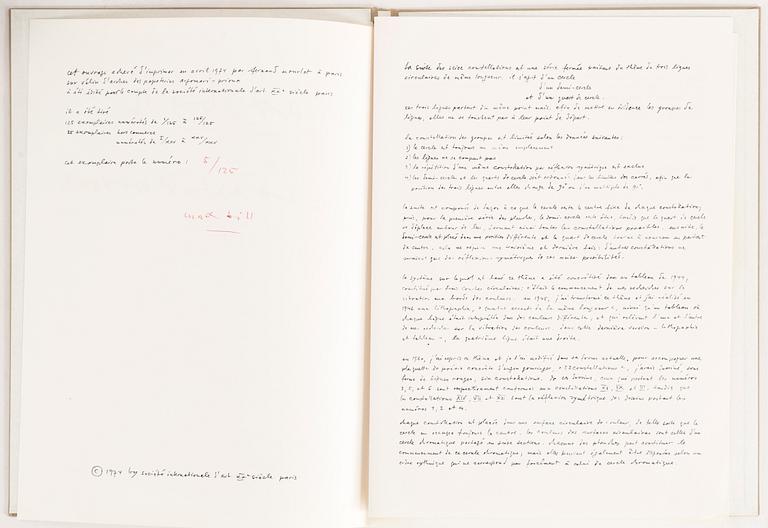 cet ouvrage achevé d'imprimer en avril 1974 par fernand mourlot à paris
sur vélin d'arches des papeteries arjomari-prioux
a été édité pour le compte de la société internationale d'art XXe siècle paris
il a été tiré
125 exemplaires numérotés de 1/125 à 125/125
25 exemplaires hors commerce
numérotés de I/XXV à XXV/XXV
cet exemplaire porte le numéro : 5/125
max bill
© 1974 by société internationale d'art XXe siècle paris
la suite des seize constellations est une série fermée du thème de trois lignes
circulaires de même longueur. il s'agit d'un cercle
d'un demi-cercle
et d'un quart de cercle.
ces trois lignes partent du même point mais, afin de mettre en évidence les groupes de
lignes, elles ne se touchent pas à leur point de départ.
la constellation des groupes est limitée selon les données suivantes :
1) le cercle est toujours au même emplacement
2) les lignes ne se coupent pas
3) la répétition d'une même constellation par réflexion symétrique est exclue
4) les demi-cercles et les quarts de cercle sont ordonnés dans les limites des carrés, afin que la
position des trois lignes entre elles change de 90° ou d'un multiple de 90°.
la suite est composée de façon à ce que le cercle reste le centre fixe de chaque constellation;
puis, pour la première série des planches, le demi-cercle reste fixe, tandis que le quart de cercle
se déplace autour de lui, donnant ainsi toutes les constellations possibles. ensuite, le
demi-cercle est placé dans une position différente et le quart de cercle tourne à nouveau en partant
du centre. cela se répète une troisième et dernière fois: d'autres constellations ne
seraient que des réflexions symétriques de ces seize possibilités.
le système sur lequel est basé ce thème a été concrétisé dans un tableau de 1944,
constitué par trois courbes circulaires: c'était le commencement de mes recherches sur la
vibration aux bords des couleurs. en 1945, j'ai transformé ce thème et j'ai réalisé en
1946 une lithographie, « quatre accents de la même longueur », ainsi qu'un tableau où
chaque ligne était interprétée dans des couleurs différentes, et qui relèvent l'une et l'autre
de mes recherches sur la vibration des couleurs. dans cette dernière version - lithographie
et tableau -, la quatrième ligne était une droite.
en 1960, j'ai repris ce thème et je l'ai modifié dans sa forme actuelle, pour accompagner une
plaquette de poésie concrète d'eugen gomringer, « 33 constellations », j'avais dessiné, sous
forme de lignes rouges, six constellations. de ces dessins, ceux qui portent les numéros
3, 5, et 6 sont respectivement conformes aux constellations XI, IX et III, tandis que
les constellations XIV, VII et XVI sont la réflexion symétrique des dessins portant les
numéros 1, 2 et 4.
chaque constellation est placée dans une surface circulaire de couleur, de telle sorte que le
cercle en occupe toujours le centre. les couleurs des surfaces circulaires sont celles d'un
cercle chromatique partagé en seize sections. chacune des planches peut constituer le
commencement de ce cercle chromatique; mais elles peuvent également être disposées selon un
ordre rythmique qui ne correspond pas forcément à celui du cercle chromatique.